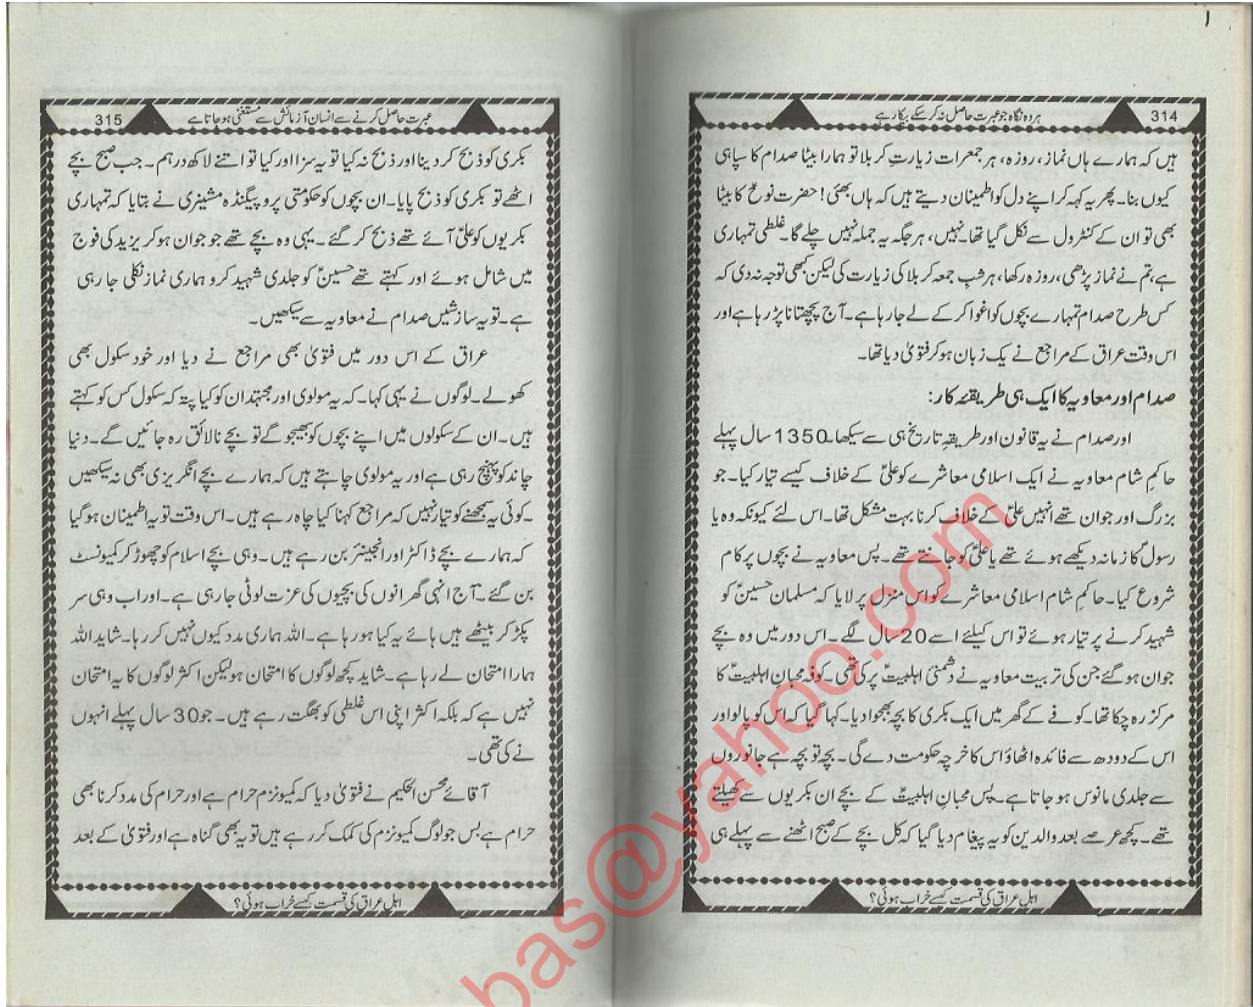 314
ہر وہ نگاہ جو عبرت حاصل نہ کر سکے بیکار ہے
ہیں کہ ہمارے ہاں نماز، روزہ، ہر جمعرات زیارتِ کربلا تو ہمارا بیٹا صدام کا سپاہی
کیوں بنا۔ پھر یہ کہہ کر اپنے دل کو اطمینان دیتے ہیں کہ ہاں بھئی! حضرت نوحؑ کا بیٹا
بھی تو ان کے کنٹرول سے نکل گیا تھا۔ نہیں، ہر جگہ یہ جملہ نہیں چلے گا۔ غلطی تمہاری
ہے، تم نے نماز پڑھی، روزہ رکھا، ہر شب جمعہ کربلا کی زیارت کی لیکن کبھی توجہ نہ دی کہ
کس طرح صدام تمہارے بچوں کو اغوا کر کے لے جا رہا ہے۔ آج پچھتانا پڑ رہا ہے اور
اس وقت عراق کے مراجع نے یک زبان ہو کر فتویٰ دیا تھا۔
صدام اور معاویہ کا ایک ہی طریقئہ کار:
اور صدام نے یہ قانون اور طریقہِ تاریخ ہی سے سیکھا۔ 1350 سال پہلے
حاکمِ شام معاویہ نے ایک اسلامی معاشرے کو علیؑ کے خلاف کیسے تیار کیا۔ جو
بزرگ اور جوان تھے انہیں علیؑ کے خلاف کرنا بہت مشکل تھا۔ اس لئے کیونکہ وہ یا
رسولؐ کا زمانہ دیکھے ہوئے تھے یا علیؑ کو جانتے تھے۔ پس معاویہ نے بچوں پر کام
شروع کیا۔ حاکمِ شام اسلامی معاشرے کو اس منزل پر لایا کہ مسلمان حسینؑ کو
شہید کرنے پر تیار ہوئے تو اس کیلئے اسے 20 سال لگے۔ اس دور میں وہ بچے
جوان ہو گئے جن کی تربیت معاویہ نے دشمنئِ اہلبیتؑ پر کی تھی۔ کوفہ محبانِ اہلبیتؑ کا
مرکز رہ چکا تھا۔ کوفے کے گھر میں ایک بکری کا بچہ بھجوا دیا۔ کہا گیا کہ اس کو پالو اور
اس کے دودھ سے فائدہ اٹھاؤ اس کا خرچہ حکومت دے گی۔ بچہ تو بچہ ہے جانوروں
سے جلدی مانوس ہو جاتا ہے۔ پس محبانِ اہلبیتؑ کے بچے ان بکریوں سے کھیلتے
تھے۔ کچھ عرصے بعد والدین کو یہ پیغام دیا گیا کہ کل بچے کے صبح اٹھنے سے پہلے ہی
اہلِ عراق کی قسمت کیسے خراب ہوئی؟
عبرت حاصل کرنے سے انسان آزمائش سے مستغنی ہو جاتا ہے
315
بکری کو ذبح کر دینا اور ذبح نہ کیا تو یہ سزا اور کیا تو اتنے لاکھ درہم۔ جب صبح بچے
اٹھے تو بکری کو ذبح پایا۔ ان بچوں کو حکومتی پروپیگنڈہ مشینری نے بتایا کہ تمہاری
بکریوں کو علیؑ آئے تھے ذبح کر گئے۔ یہی وہ بچے تھے جو جوان ہو کر یزید کی فوج
میں شامل ہوئے اور کہتے تھے حسینؑ کو جلدی شہید کرو ہماری نماز نکلی جا رہی
ہے۔ تو یہ سازشیں صدام نے معاویہ سے سیکھیں۔
عراق کے اس دور میں فتویٰ بھی مراجع نے دیا اور خود سکول بھی
کھولے۔ لوگوں نے یہی کہا۔ کہ یہ مولوی اور مجتہد ان کو کیا پتہ کہ سکول کس کو کہتے
ہیں۔ ان کے سکولوں میں اپنے بچوں کو بھیجو گے تو بچے نالائق رہ جائیں گے۔ دنیا
چاند کو پہنچ رہی ہے اور یہ مولوی چاہتے ہیں کہ ہمارے بچے انگریزی بھی نہ سیکھیں
۔ کوئی یہ سمجھنے کو تیار نہیں کہ مراجع کہنا کیا چاہ رہے ہیں۔ اس وقت تو یہ اطمینان ہو گیا
کہ ہمارے بچے ڈاکٹر اور انجینئر بن رہے ہیں۔ وہی بچے اسلام کو چھوڑ کر کمیونسٹ
بن گئے۔ آج انہی گھرانوں کی بچیوں کی عزت لوٹی جا رہی ہے۔ اور اب وہی سر
پکڑ کر بیٹھے ہیں ہائے یہ کیا ہو رہا ہے۔ اللہ ہماری مدد کیوں نہیں کر رہا۔ شاید اللہ
ہمارا امتحان لے رہا ہے۔ شاید کچھ لوگوں کا امتحان ہو لیکن اکثر لوگوں کا یہ امتحان
نہیں ہے کہ بلکہ اکثر اپنی اس غلطی کو بھگت رہے ہیں۔ جو 30 سال پہلے انہوں
نے کی تھی۔
آقائے محسن الحکیم نے فتویٰ دیا کہ کمیونزم حرام ہے اور حرام کی مدد کرنا بھی
حرام ہے بس جو لوگ کمیونزم کی کمک کر رہے ہیں تو یہ بھی گناہ ہے اور فتویٰ کے بعد
اہلِ عراق کی قسمت کیسے خراب ہوئی؟
bas@yahoo.com